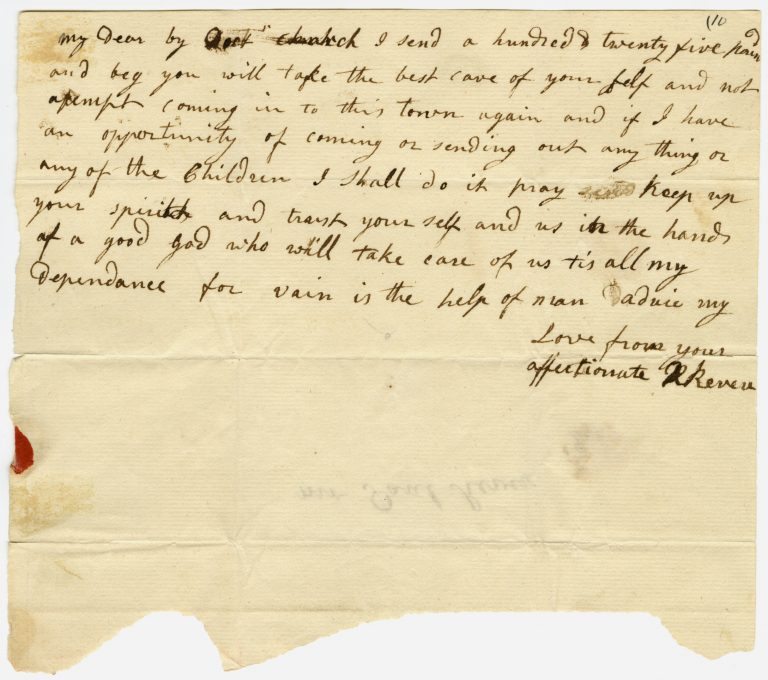 (10
my Dear by Doctr Church I send a hundred & twenty five pound
and beg you will take the best care of your self and not
atempt coming in to this town again and if I have
an opportunity of coming or sending out any thing or
any of the Children I shall do it pray Keep up
your spirits and trust your self and us in the hands
of a good God who will take care of us tis all my
Dependance for vain is the help of man adue my
Love from your
affectionate R Revere
mr Paul Revere